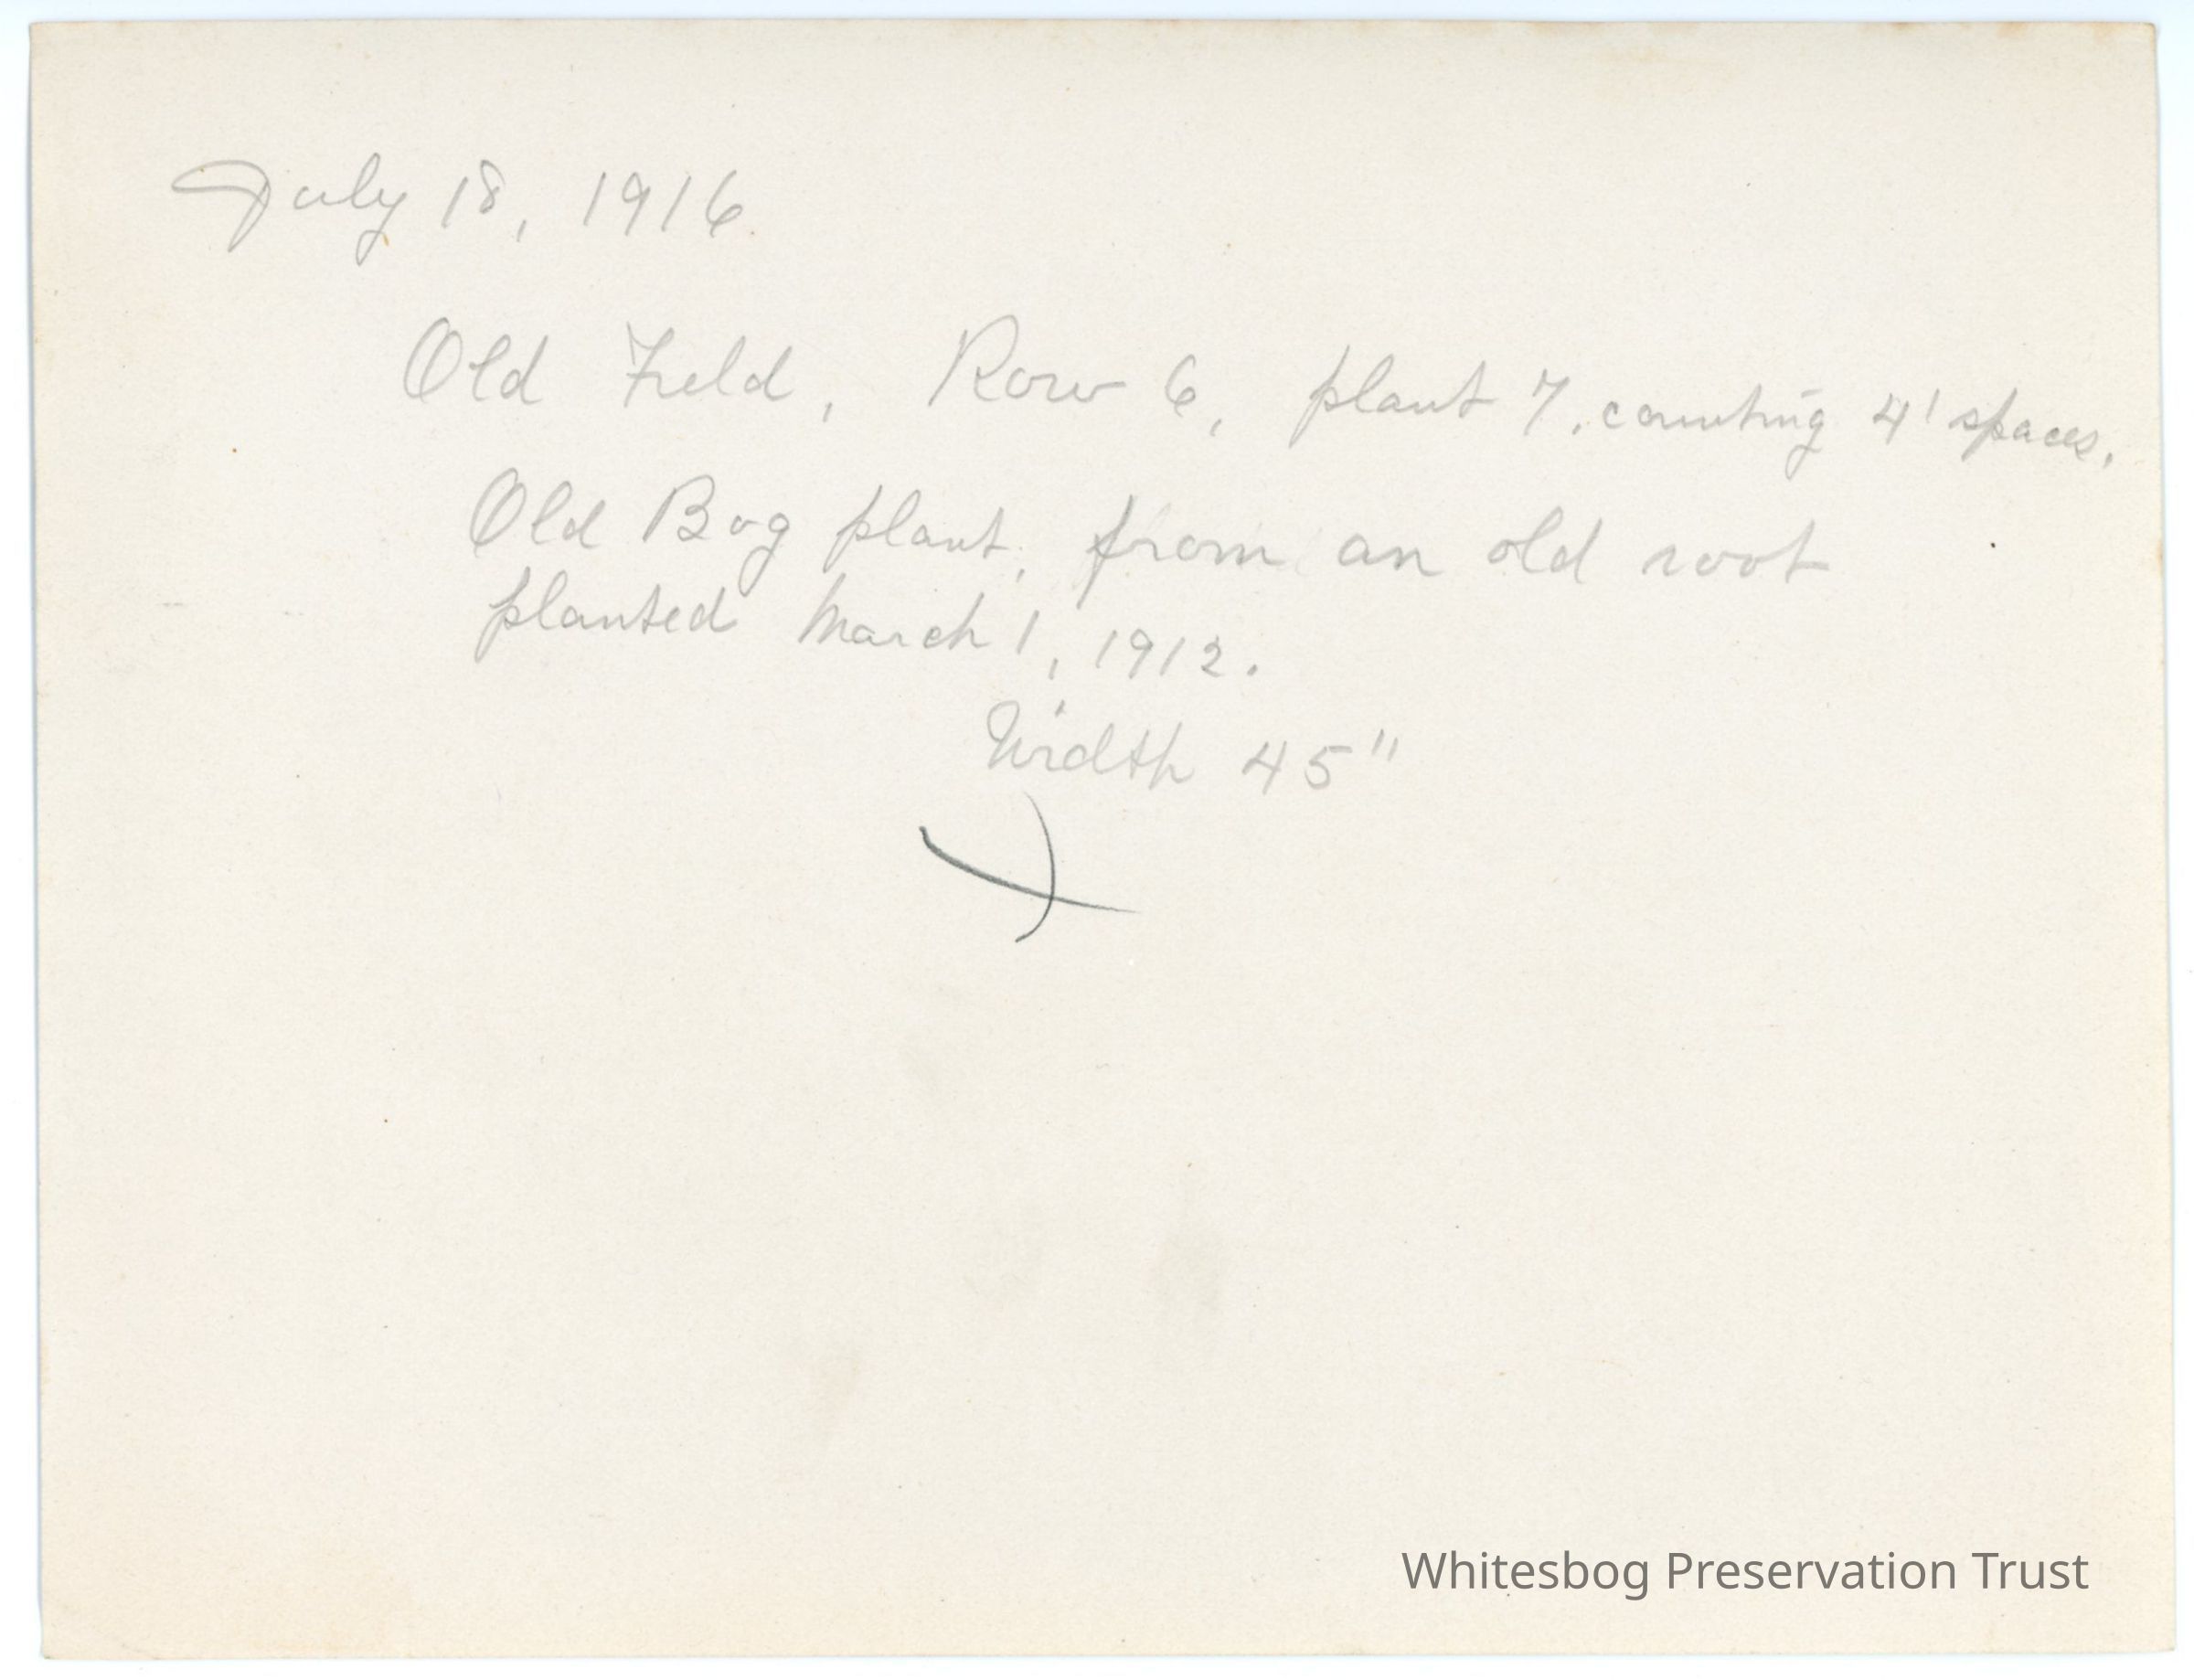 July 18, 1916.
Old Field, Row 6, plant 7, counting 4' spaces.
Old Bog plant, from an old root
planted March 1, 1912.
Width 45"
Whitesbog Preservation Trust